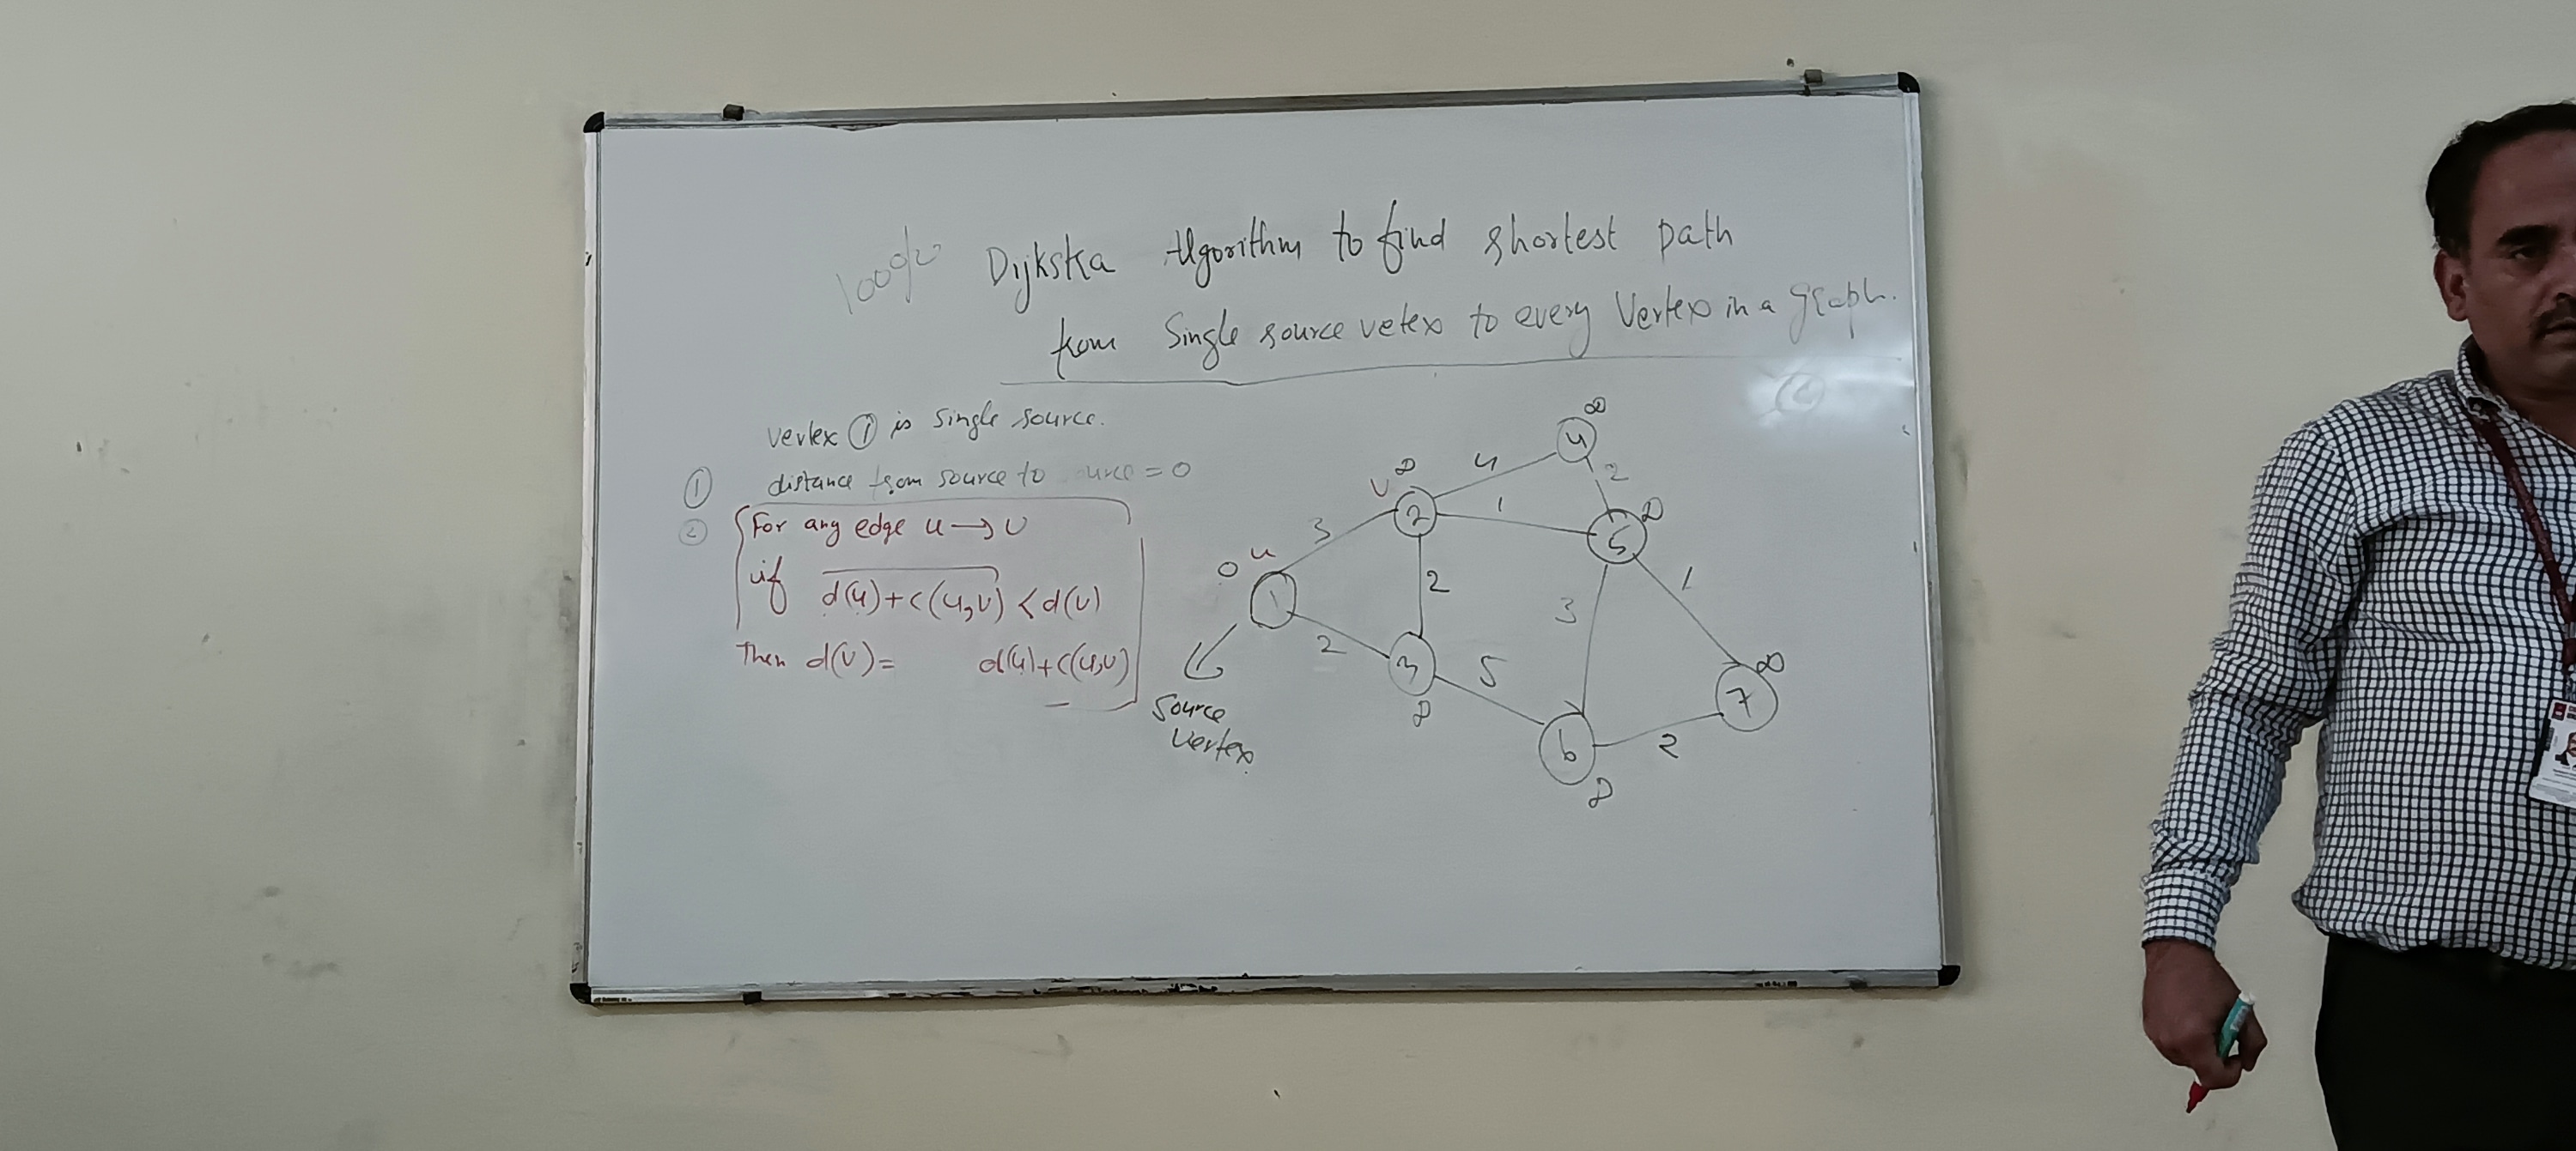 100%
Dijkska Algorithm to find shortest path
from Single source vetex to every Vertex in a graph.
vertex ① is single source.
① distance from source to urce = 0
② For any edge u → v
if d(u)+c(u,v) < d(v)
Then d(v) = d(u)+c(u,v)
∞
4
4
2
∞
v
2
1
∞
5
3
u
0
1
2
2
3
∞
5
3
1
∞
7
6
2
∞
Source
Vertex.